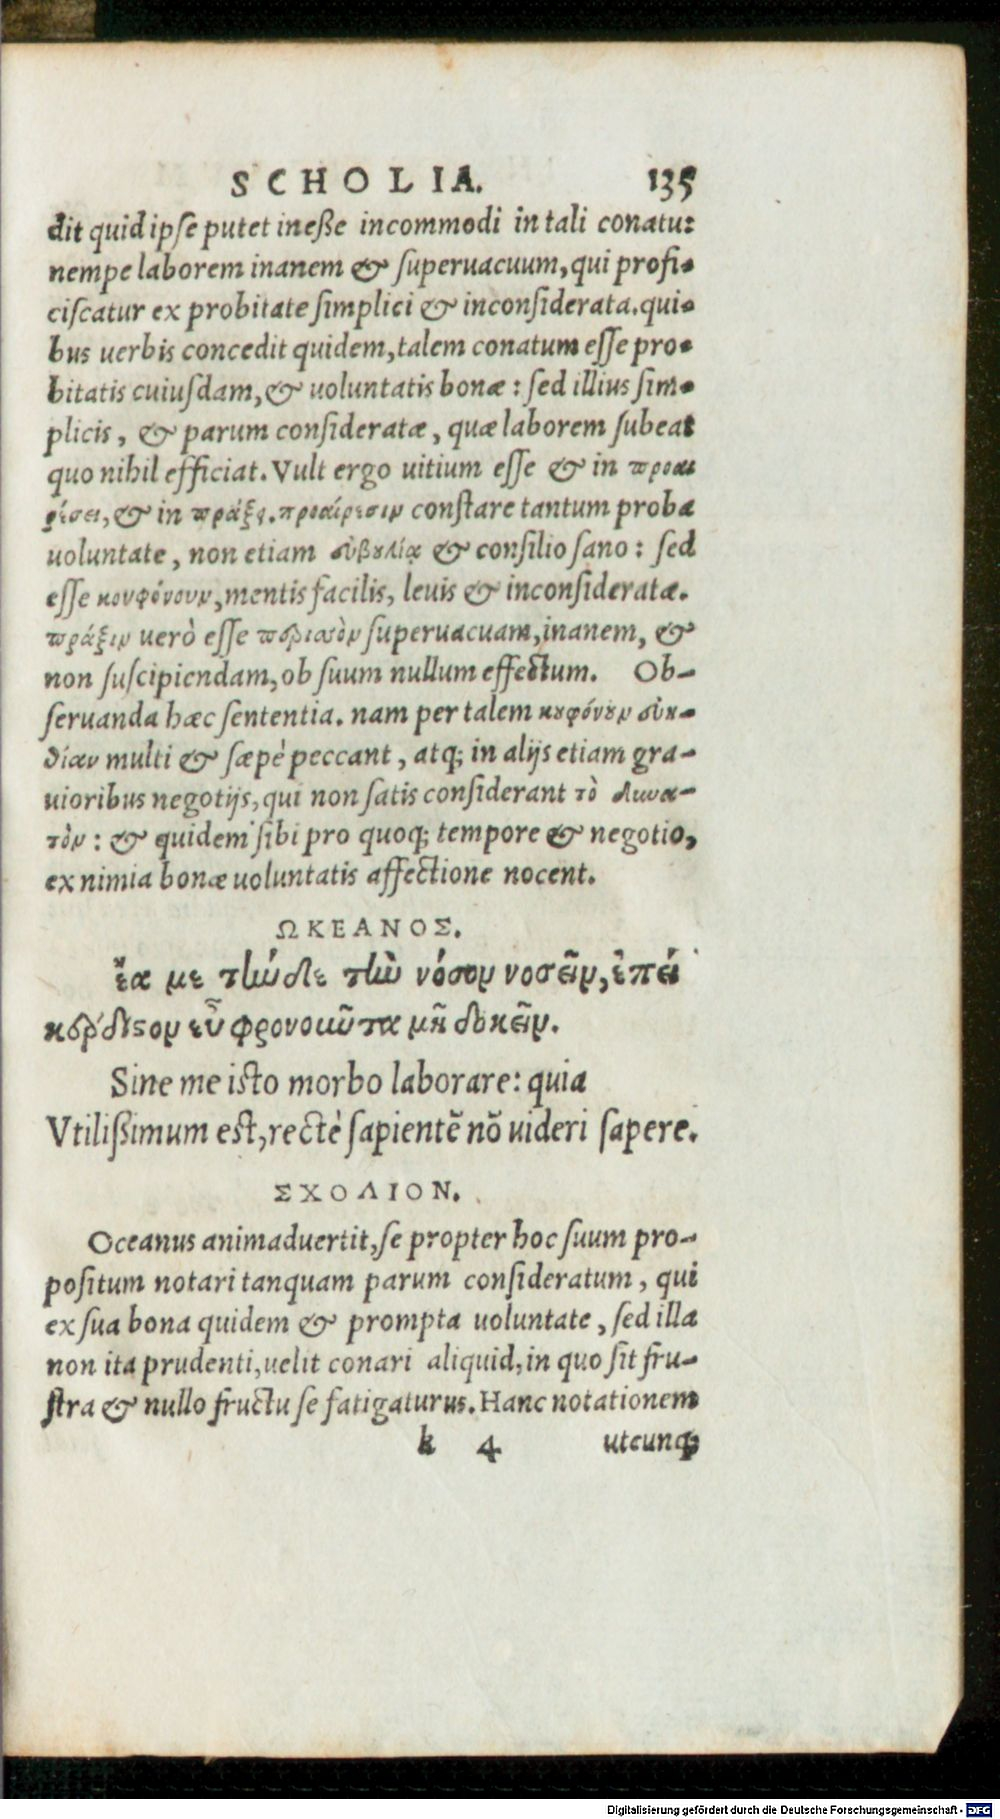 SCHOLIA. 135
dit quid ipse putet inesse incommodi in tali conatu:
nempe laborem inanem & superuacuum, qui profi-
ciscatur ex probitate simplici & inconsiderata. qui-
bus uerbis concedit quidem, talem conatum esse pro-
bitatis cuiusdam, & uoluntatis bonæ: sed illius sim-
plicis, & parum consideratæ, quæ laborem subeat
quo nihil efficiat. Vult ergo uitium esse & in προαι
ρέσει, & in πράξει. προαίρεσιν constare tantum proba
uoluntate, non etiam εὐβουλίᾳ & consilio sano: sed
esse κουφόνουν, mentis facilis, leuis & inconsideratæ.
πρᾶξιν uerò esse περισσὸν superuacuam, inanem, &
non suscipiendam, ob suum nullum effectum. Ob-
seruanda hæc sententia. nam per talem κουφόνουν εὐη-
θίαν multi & sæpè peccant, atq; in alijs etiam gra-
uioribus negotijs, qui non satis considerant τὸ δυνα-
τὸν: & quidem sibi pro quoq; tempore & negotio,
ex nimia bonæ uoluntatis affectione nocent.
ΩΚΕΑΝΟΣ.
ἔα με τήνδε τὴν νόσον νοσεῖν, ἐπεὶ
κέρδιστον εὖ φρονοῦντα μὴ δοκεῖν.
Sine me isto morbo laborare: quia
Vtilissimum est, rectè sapientẽ nõ uideri sapere.
ΣΧΟΛΙΟΝ.
Oceanus animaduertit, se propter hoc suum pro-
positum notari tanquam parum consideratum, qui
ex sua bona quidem & prompta uoluntate, sed illa
non ita prudenti, uelit conari aliquid, in quo sit fru-
stra & nullo fructu se fatigaturus. Hanc notationem
k 4 utcunq;
Digitalisierung gefördert durch die Deutsche Forschungsgemeinschaft - DFG